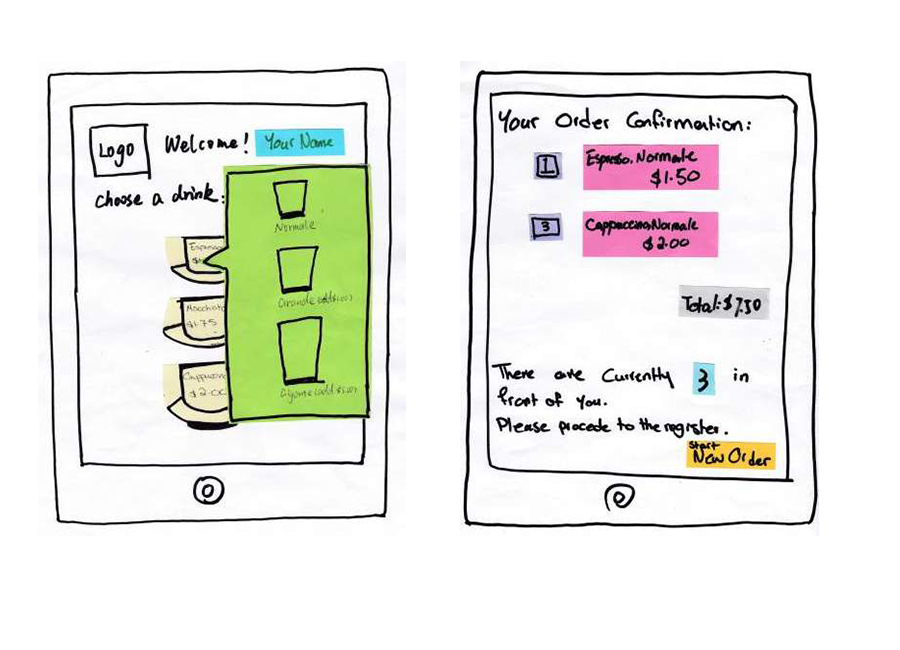 Logo
Welcome!
Your Name
Choose a drink:
Espresso
Normale
Macchiato
$1.75
Cappuccino
$2.00
Grande add
add
Your Order Confirmation:
1
Espresso, Normale
$1.50
3
Cappuccino, Normale
$2.00
Total: $7.50
There are Currently 3 in
front of you.
Please procede to the register.
Start
New Order